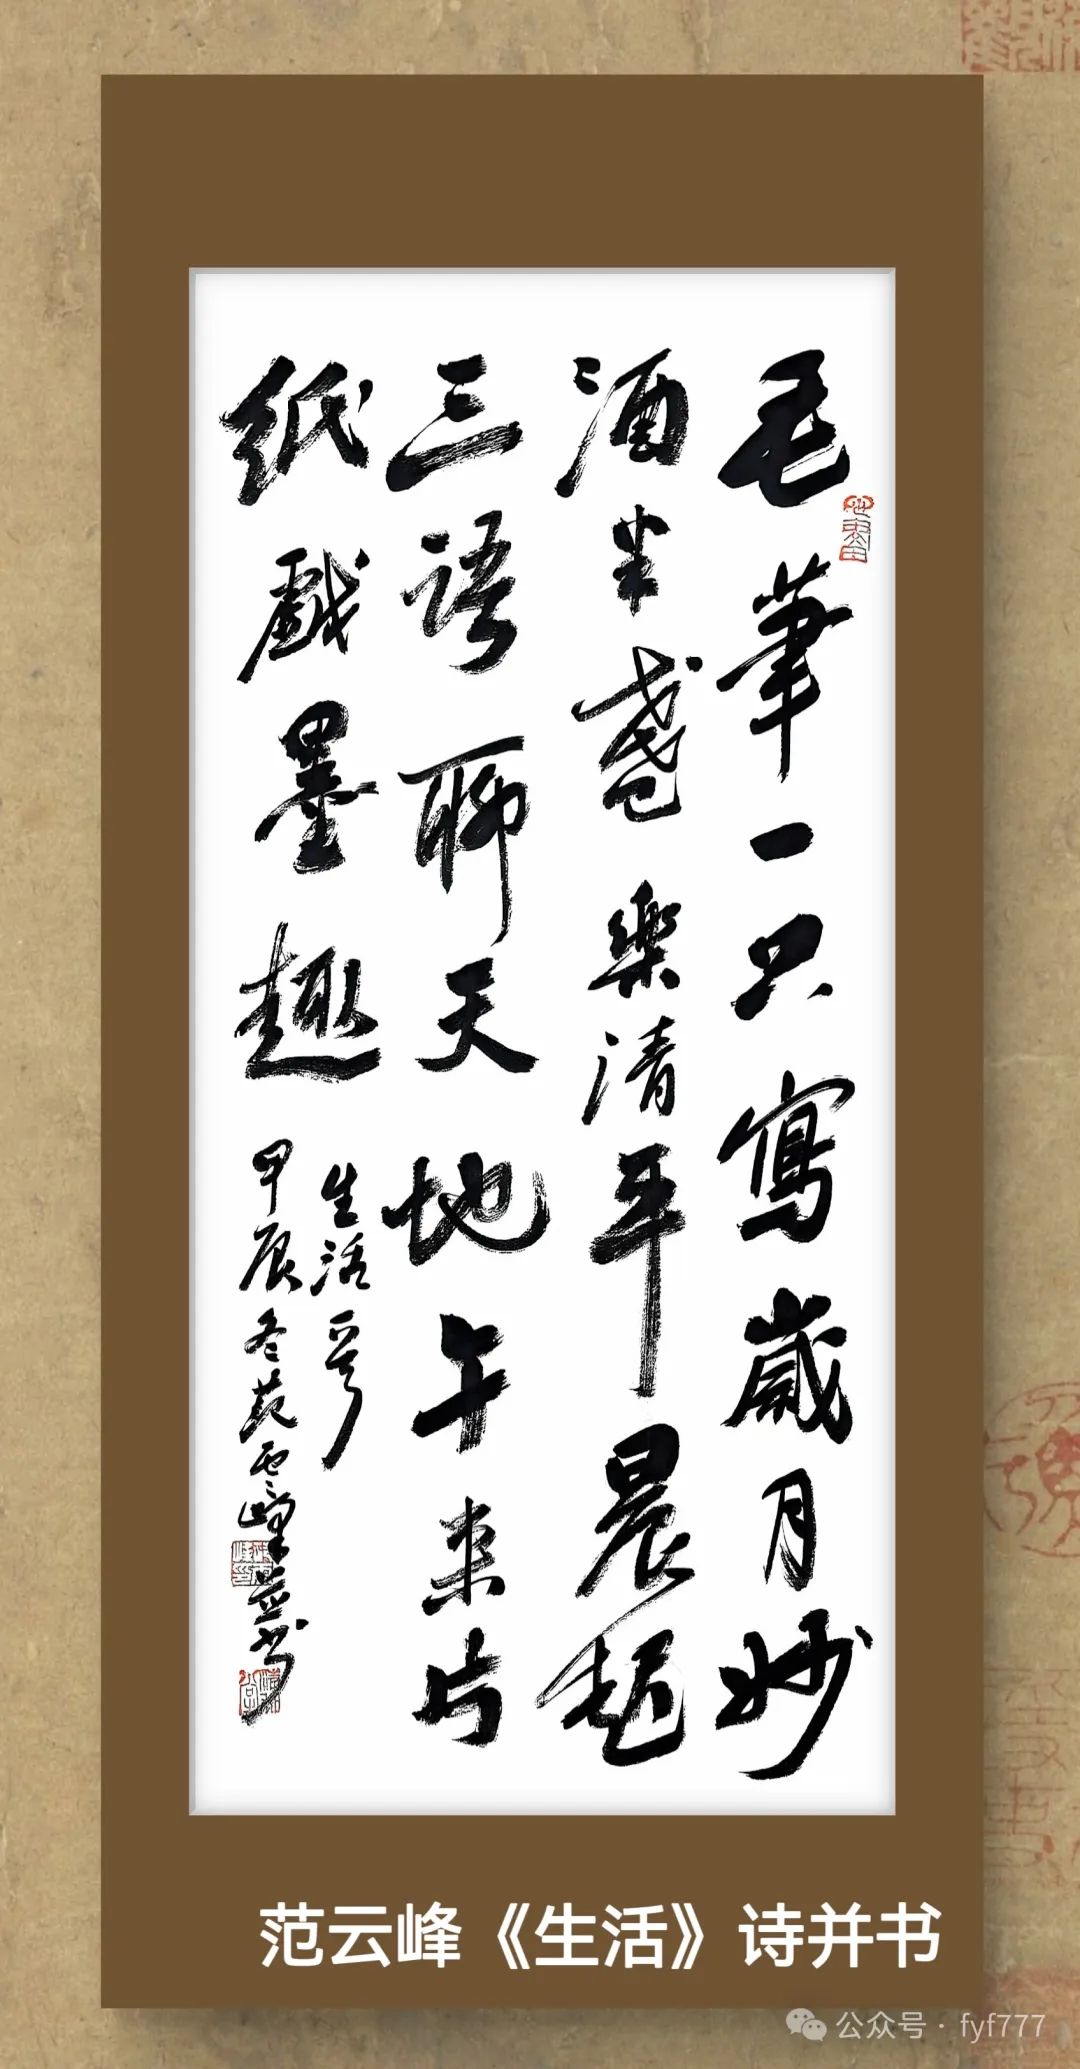 毛筆一只寫歲月妙
酒半盞樂清平晨起
三語聊天地午来片
紙戲墨趣
生活一首
甲辰冬范雲峰並书
范云峰《生活》诗并书
公众号·fyf777